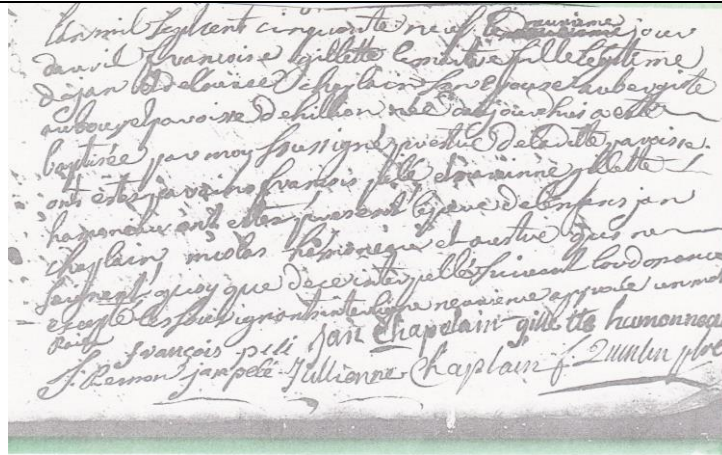 L'an mil sept cent cinquante neuf le neuvieme jour
davril francoise gillette fille legitime
de jan et de louise Chaplain son epouse aubergiste
au bourg et paroisse dehillion née aujourdhuis a esté
baptisée par moy soussigné prestre de laditte paroisse.
ont estes parains francois pelé et marainne gillette
hamoneaux ont estes present le pere de lenfans jan
Chaplain nicolas et autre qui ne
signent quoy que de ce interpellé suivant lordonnance
excepté les soussignants interligne neuvieme approuvé un mot
françois peli jan Chapelain gillette hamonneau
jan pelé Jullienne Chaplain f. Quintin ptre